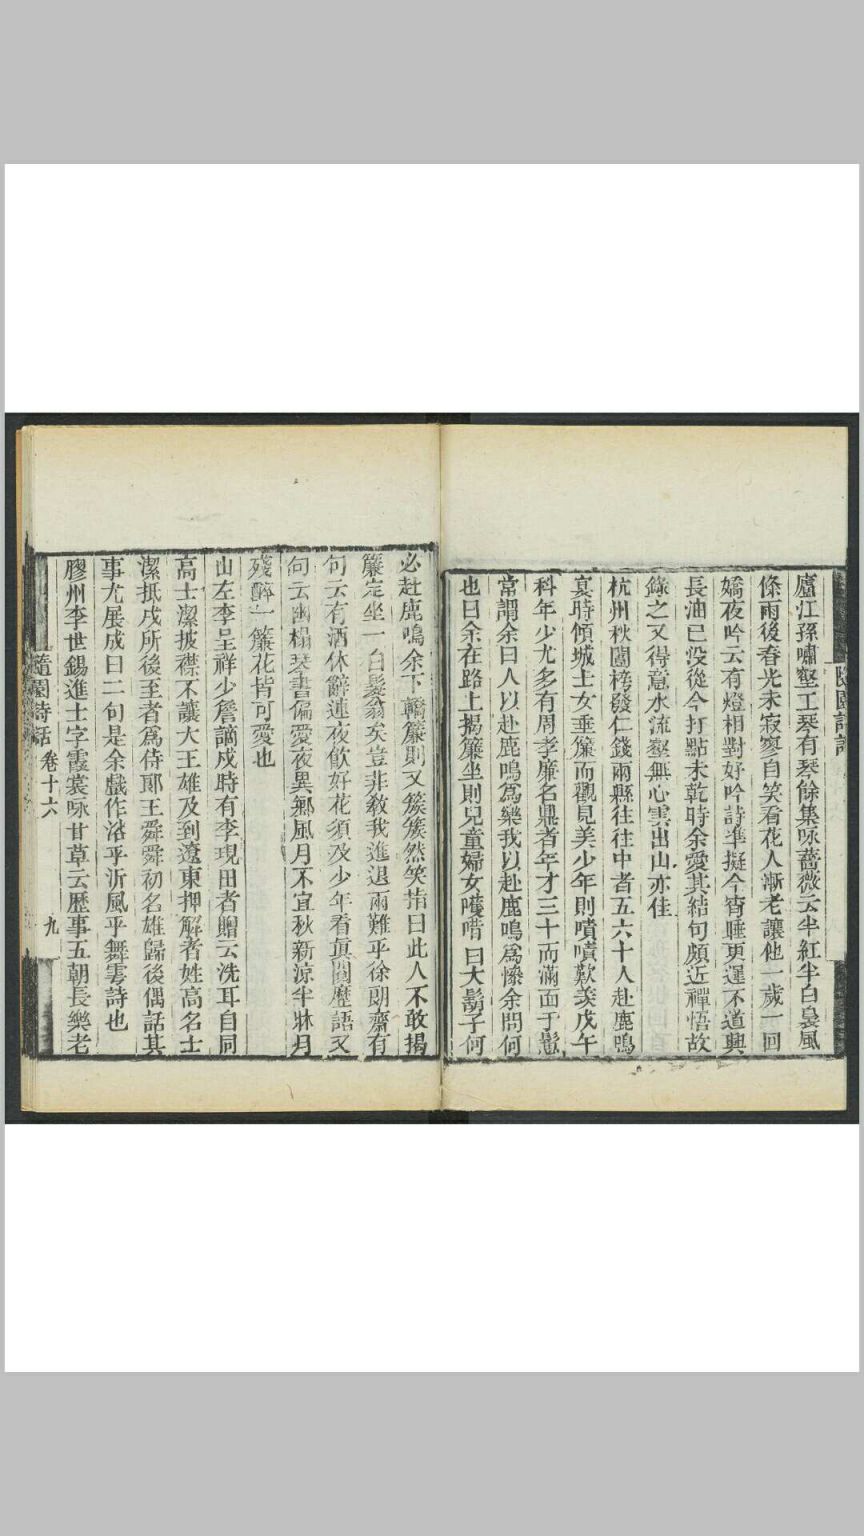 廬江孫嘯壑工琴有琴餘集咏薔薇云半紅半白裊風
條雨後春光未寂寥自笑看花人漸老讓他一歲一回
嬌夜吟云有燈相對好吟詩準擬今宵睡更遲不道興
長油已沒從今打點未乾時余愛其結句頗近禪悟故
錄之又得意水流壑無心雲出山亦佳
杭州秋闈榜發仁錢兩縣往往中者五六十人赴鹿鳴
宴時傾城士女垂簾而觀見美少年則嘖嘖歎羨戊午
科年少尤多有周孝廉名鼎者年才三十而滿面于思
常謂余曰人以赴鹿鳴為樂我以赴鹿鳴為慘余問何
也曰余在路上揭簾坐則兒童婦女嘆唶曰大鬍子何
必赴鹿鳴余下轎簾則又簇簇然笑指曰此人不敢揭
簾定坐一白髮翁矣豈非敎我進退兩難乎徐朗齋有
句云有酒休辭連夜飲好花須及少年看真閱歷語又
句云幽榻琴書偏愛夜異鄉風月不宜秋新涼半牀月
殘醉一簾花皆可愛也
山左李呈祥少詹謫戍時有李現田者贈云洗耳自同
高士潔披襟不讓大王雄及到遼東押解者姓高名士
潔抵戍所後至者為侍郎王舜舜初名雄歸後偶話其
事尤展成曰二句是余戲作浴乎沂風乎舞雩詩也
膠州李世錫進士字霞裳咏甘草云歷事五朝長樂老
隨園詩話 卷十六 九